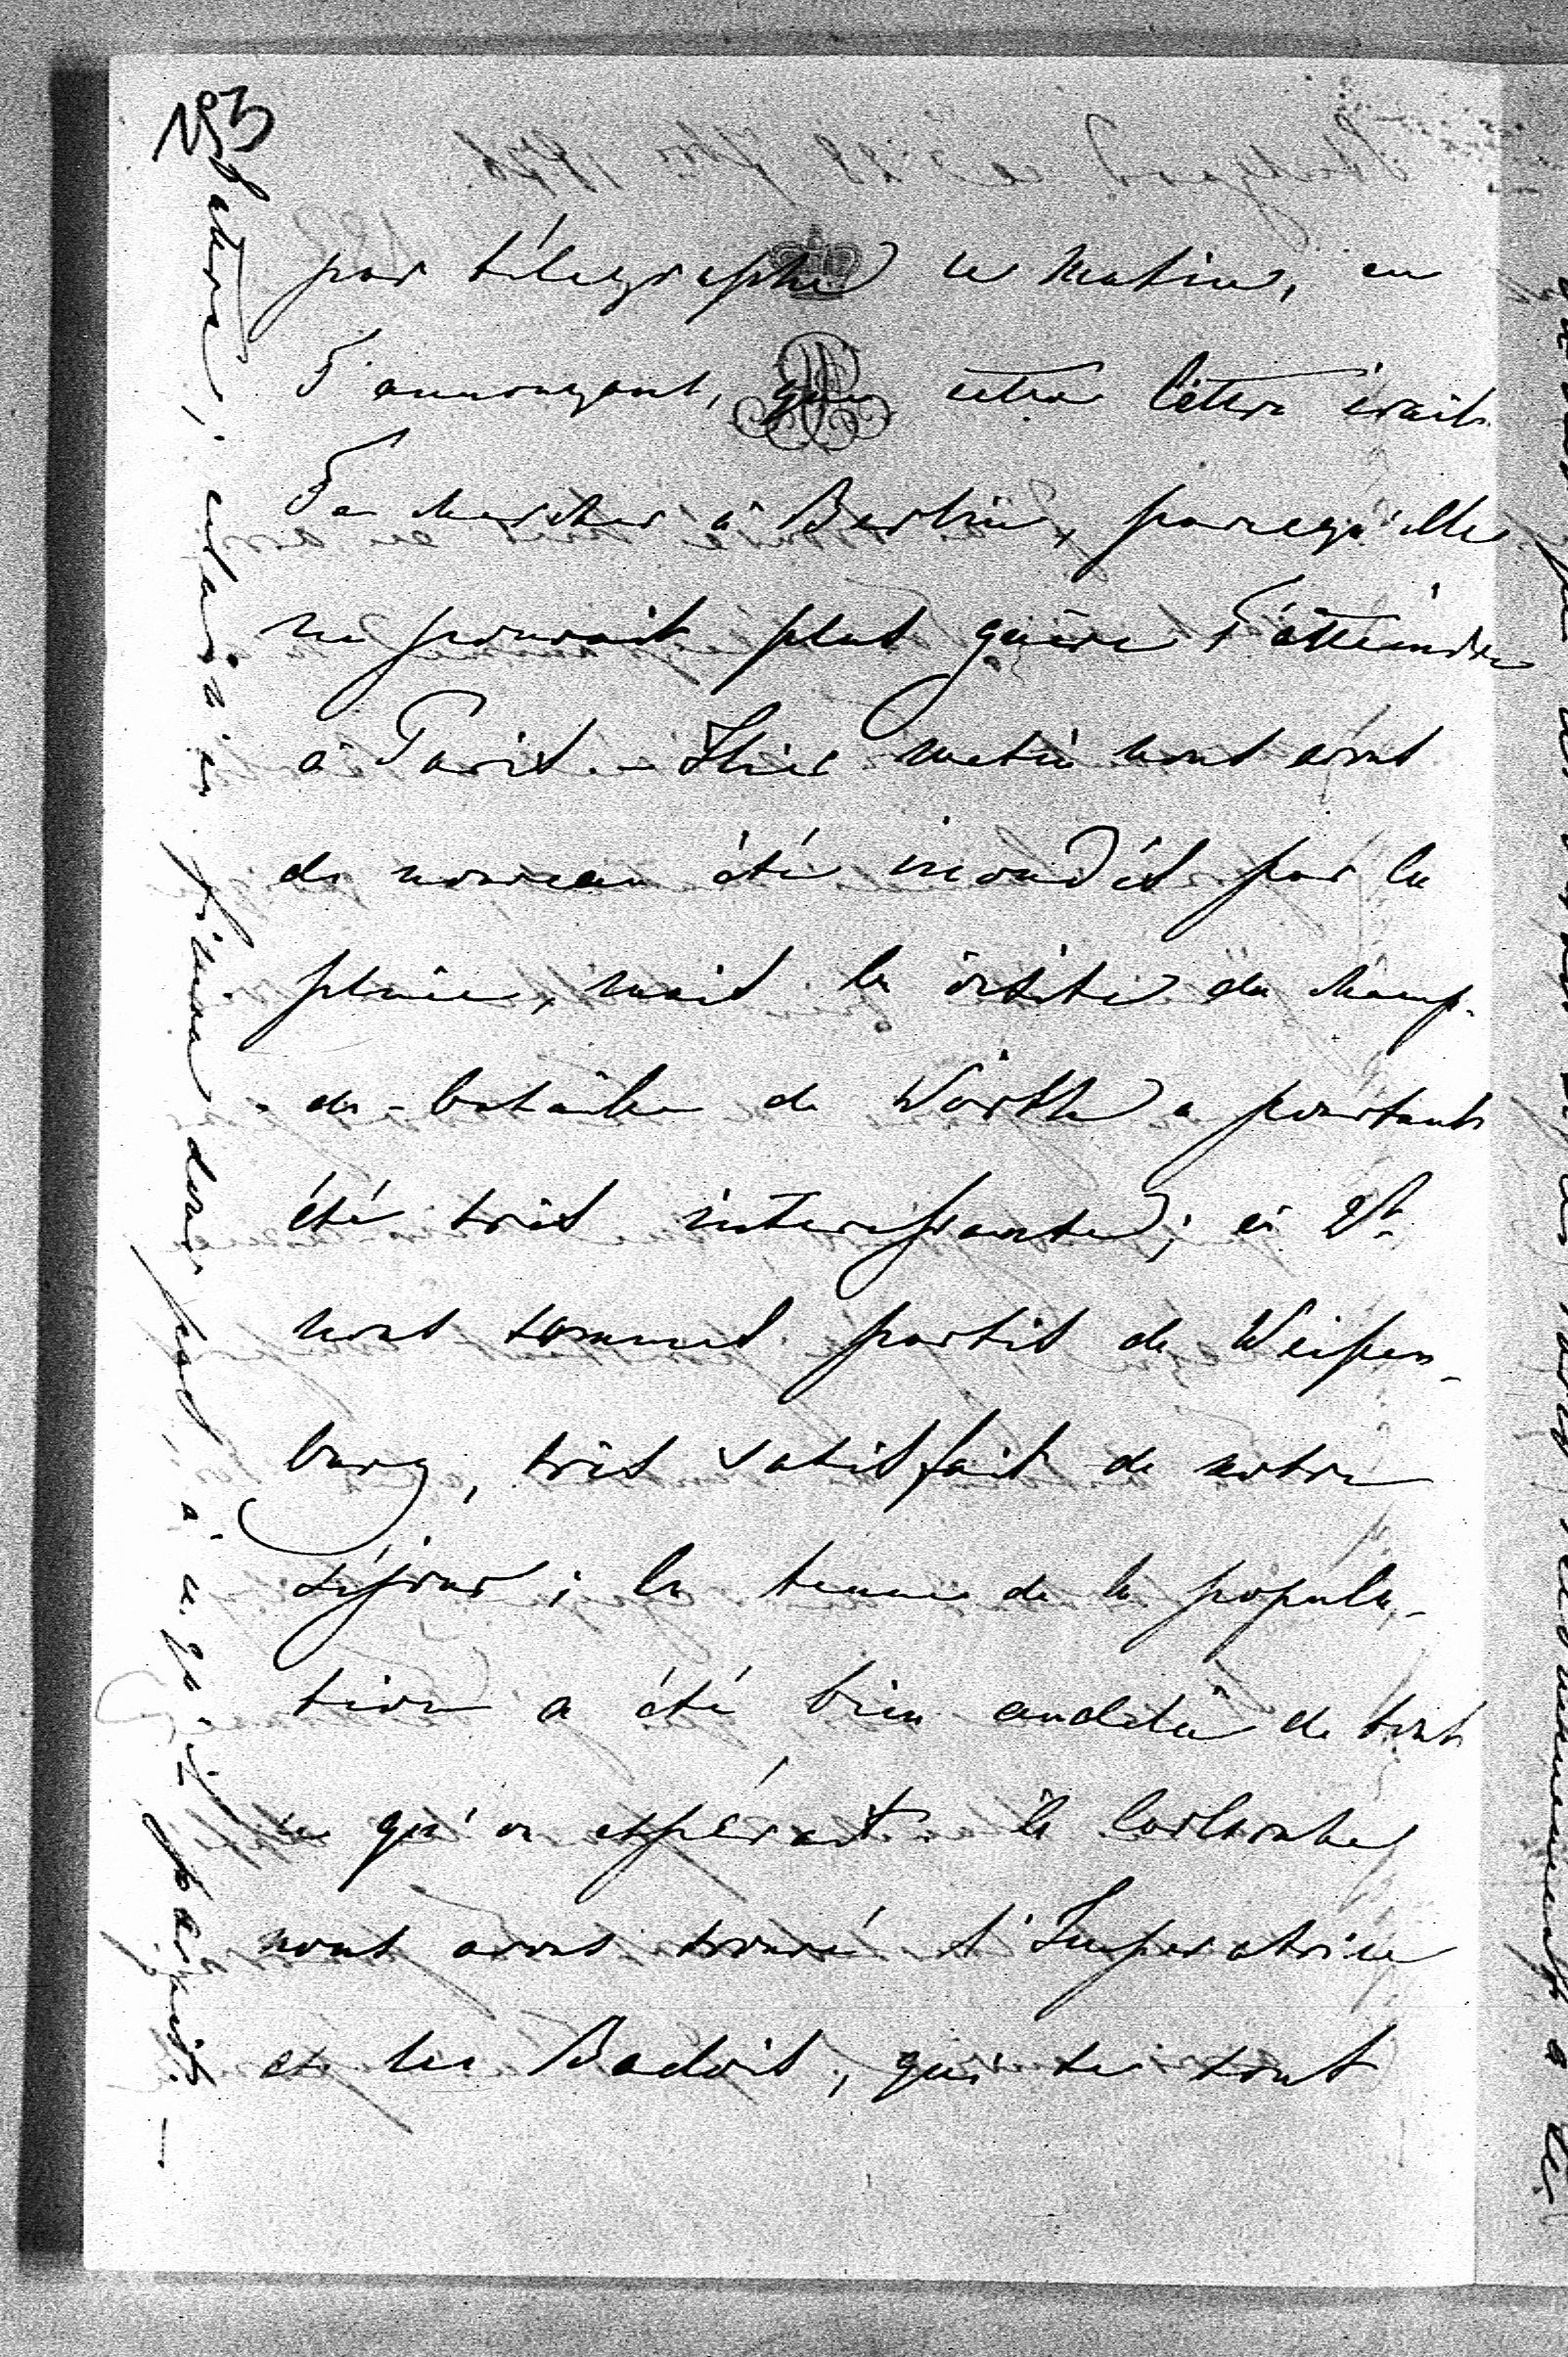 193
par télégraphe ce matin, en
T'annonçant, que cette lettre irait
Te chercher à Berlin, parcequ'elle
ne pourrait plus guère T'atteindre
à Paris. – Hier matin nous avons
de nouveau été inondés par la
pluie, mais la visite du champ-
de-bataille de Wörth a pourtant
été très interessante; à 2h
nous sommes partis de Weissen-
burg, très satisfait de notre
séjour; la tenue de la popula-
tion a été bien audelà de tout
ce qu'on espérait. à Carlsruhe
nous avons trouvé l'Imperatrice
et les Badois, qui se sont